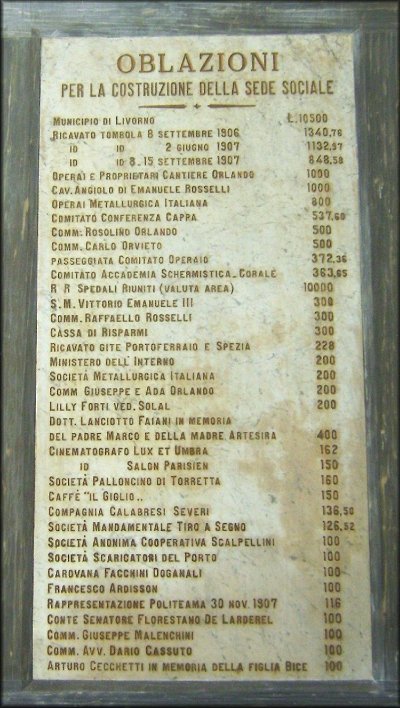 OBLAZIONI
PER LA COSTRUZIONE DELLA SEDE SOCIALE
MUNICIPIO DI LIVORNO £.10500
RICAVATO TOMBOLA 8 SETTEMBRE 1906 1340,76
ID ID 2 GIUGNO 1907 1132,97
ID ID 8.15 SETTEMBRE 1907 848,58
OPERAI E PROPRIETARI CANTIERE ORLANDO 1000
CAV. ANGIOLO DI EMANUELE ROSSELLI 1000
OPERAI METALLURGICA ITALIANA 800
COMITATO CONFERENZA CAPPA 537,60
COMM: ROSOLINO ORLANDO 500
COMM. CARLO ORVIETO 500
PASSEGGIATA COMITATO OPERAIO 372,36
COMITATO ACCADEMIA SCHERMISTICA-CORALE 363,65
R R SPEDALI RIUNITI (VALUTA AREA) 10000
S.M. VITTORIO EMANUELE III 308
COMM. RAFFAELLO ROSSELLI 300
CASSA DI RISPARMI 300
RICAVATO GITE PORTOFERRAIO E SPEZIA 228
MINISTERO DELL'INTERNO 200
SOCIETÀ METALLURGICA ITALIANA 200
COMM GIUSEPPE E ADA ORLANDO 200
LILLY FORTI VED. SOLAL 200
DOTT. LANCIOTTO FAIANI IN MEMORIA
DEL PADRE MARCO E DELLA MADRE ARTESIRA 400
CINEMATOGRAFO LUX ET UMBRA 162
ID SALON PARISIEN 150
SOCIETÀ PALLONCINO DI TORRETTA 160
CAFFÈ "IL GIGLIO" 150
COMPAGNIA CALABRESI SEVERI 136,50
SOCIETÀ MANDAMENTALE TIRO A SEGNO 126,52
SOCIETÀ ANONIMA COOPERATIVA SCALPELLINI 100
SOCIETÀ SCARICATORI DEL PORTO 100
CAROVANA FACCHINI DOGANALI 100
FRANCESCO ARDISSON 100
RAPPRESENTAZIONE POLITEAMA 30 NOV. 1907 116
CONTE SENATORE FLORESTANO DE LARDEREL 100
COMM. GIUSEPPE MALENCHINI 100
COMM. AVV. DARIO CASSUTO 100
ARTURO CECCHETTI IN MEMORIA DELLA FIGLIA BICE 100